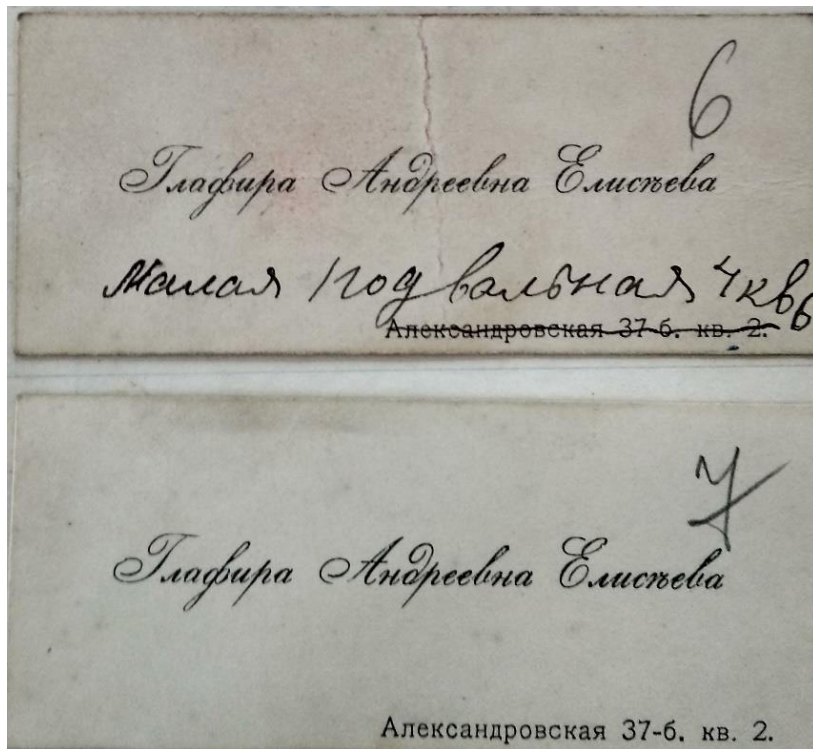 6
Глафира Андреевна Елисѣева
Малая Подвальная 4 кв 6
Александровская 37-б. кв. 2.
7
Глафира Андреевна Елисѣева
Александровская 37-б. кв. 2.